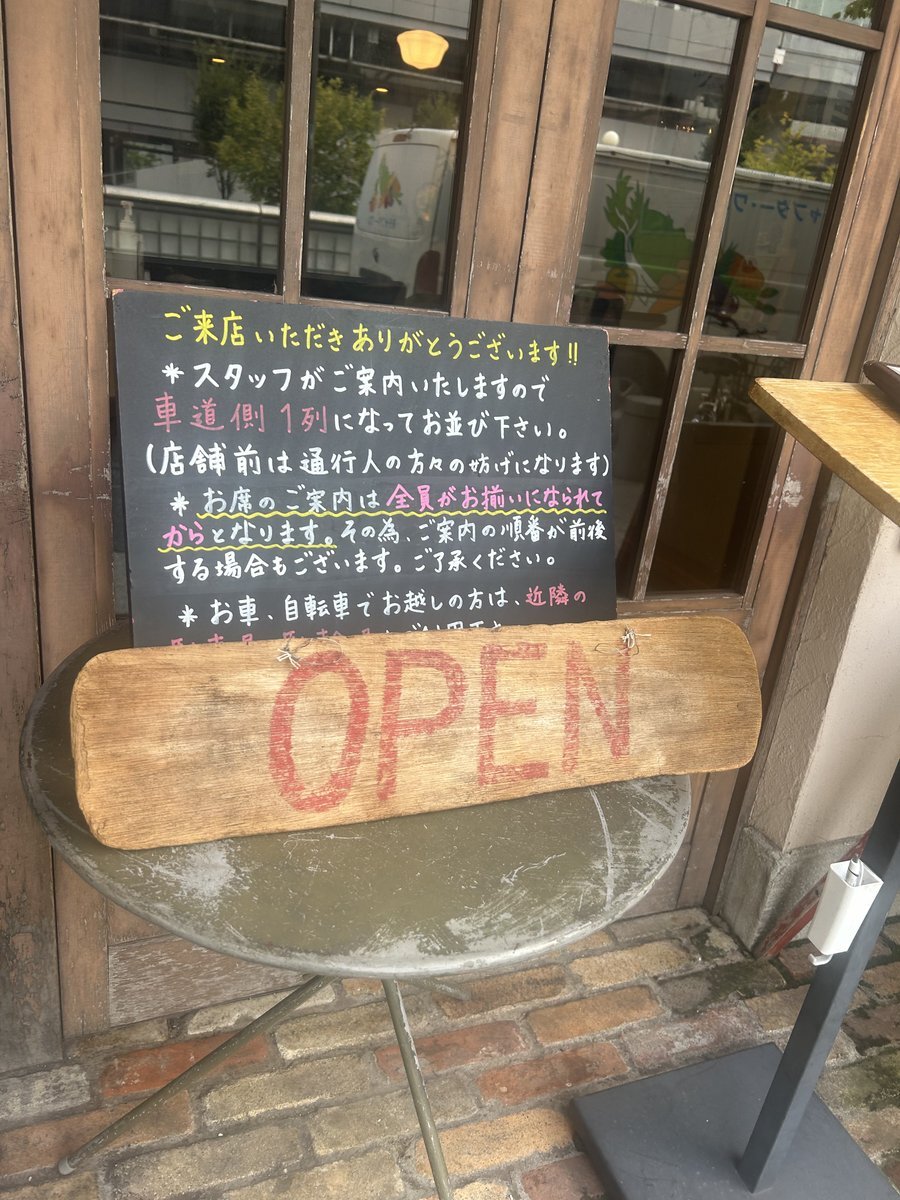 ご来店いただきありがとうございます!!
*スタッフがご案内いたしますので
車道側1列になってお並び下さい。
(店舗前は通行人の方々の妨げになります)
*お席のご案内は全員がお揃いになられて
からとなります。その為、ご案内の順番が前後
する場合もございます。ご了承ください。
*お車、自転車でお越しの方は、近隣の
OPEN